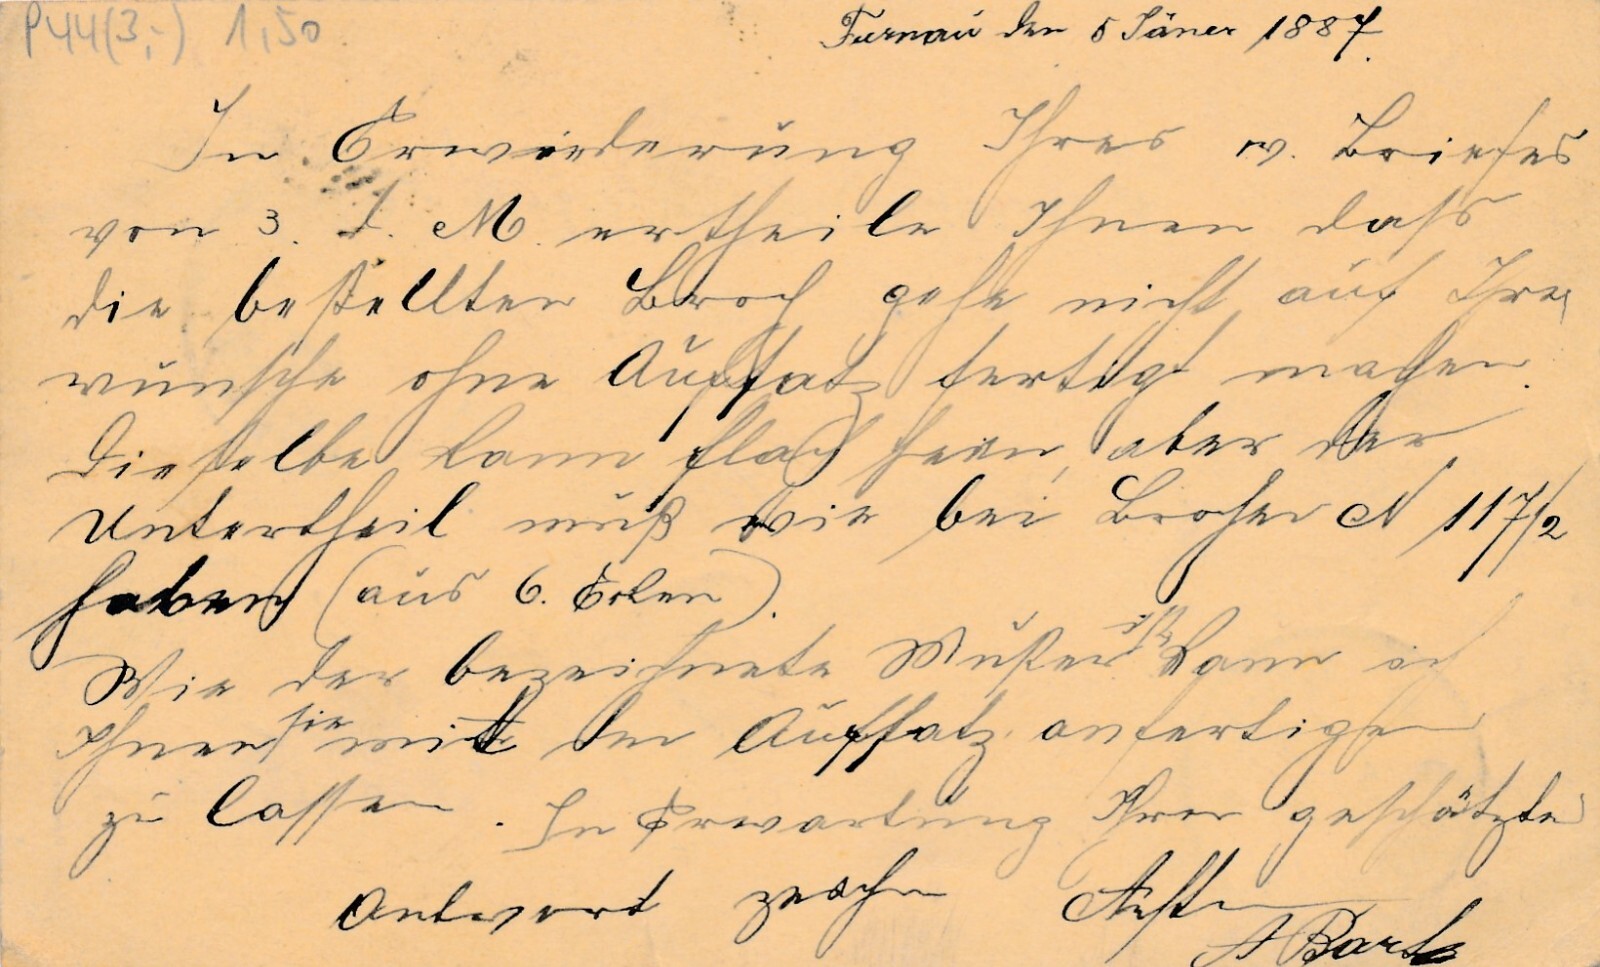 P44(3,-) 1,50
Turnau den 5 Jäner 1887.
In Erwiederung Ihres w. Briefes
von 3. d. M. ertheile Ihnen daß
die bestellten Broch gehe nicht auf Ihre
wunsche ohne Aufsatz fertigt machen.
Dieselbe kann flach sein, aber der
Untertheil muß wie bei Brochen N 117/2
haben (aus 6. Ecken).
Wie der bezeichnete Muster ist kann ich
Ihnen sie mit den Aufsatz anfertigen
zu lassen. In Erwartung Ihrer geschätzte
Antwort zeichn
A Bartz